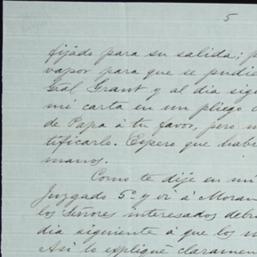 5
fijádo para su salida; p
vapor para que se pudie
Gral Grant y al dia sigu
mi carta en un pliego
de Papa á tu favor, pero
tificarlo. Espero que habr
manos.
Como te dije en mi
Juzgado 5º y vi á Moran
los Señores interesados debe
dia siguiente á que los
Asi lo expliqué claramen